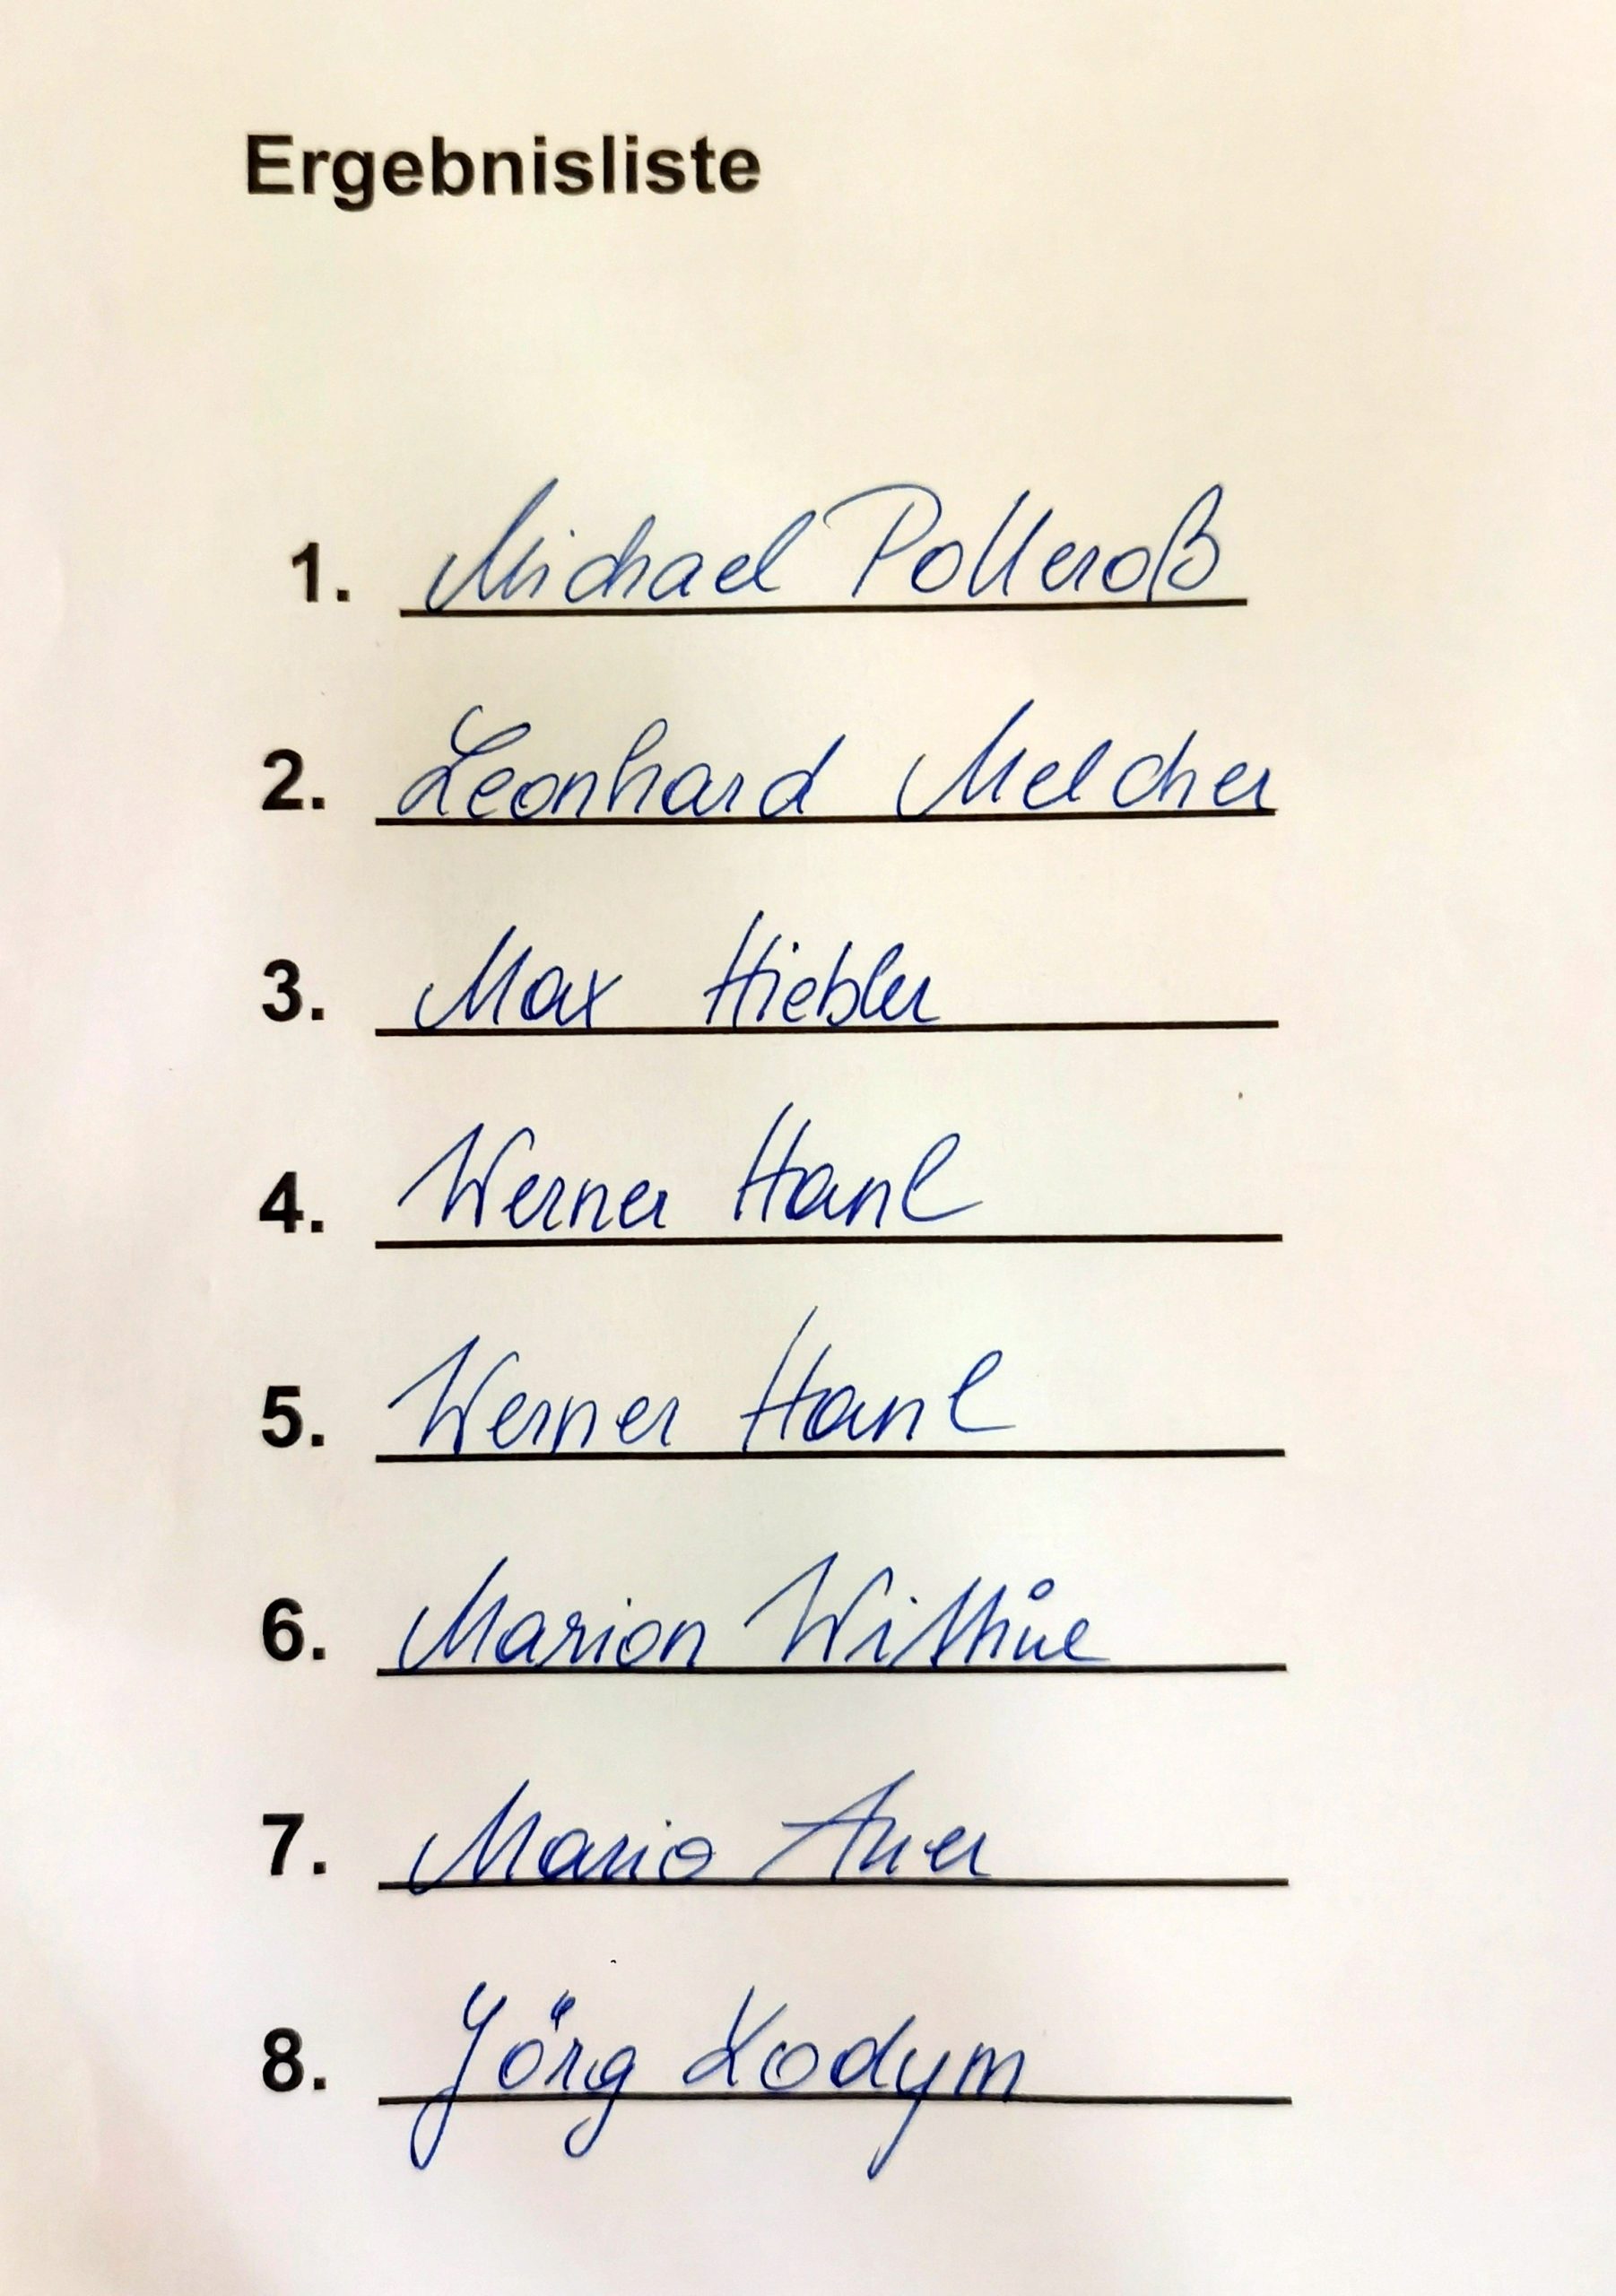 Ergebnisliste
1. Michael Polleroß
2. Leonhard Melcher
3. Max Hiebler
4. Werner Hanl
5. Werner Hanl
6. Marion
7. Mario Auer
8. Jörg Kodym